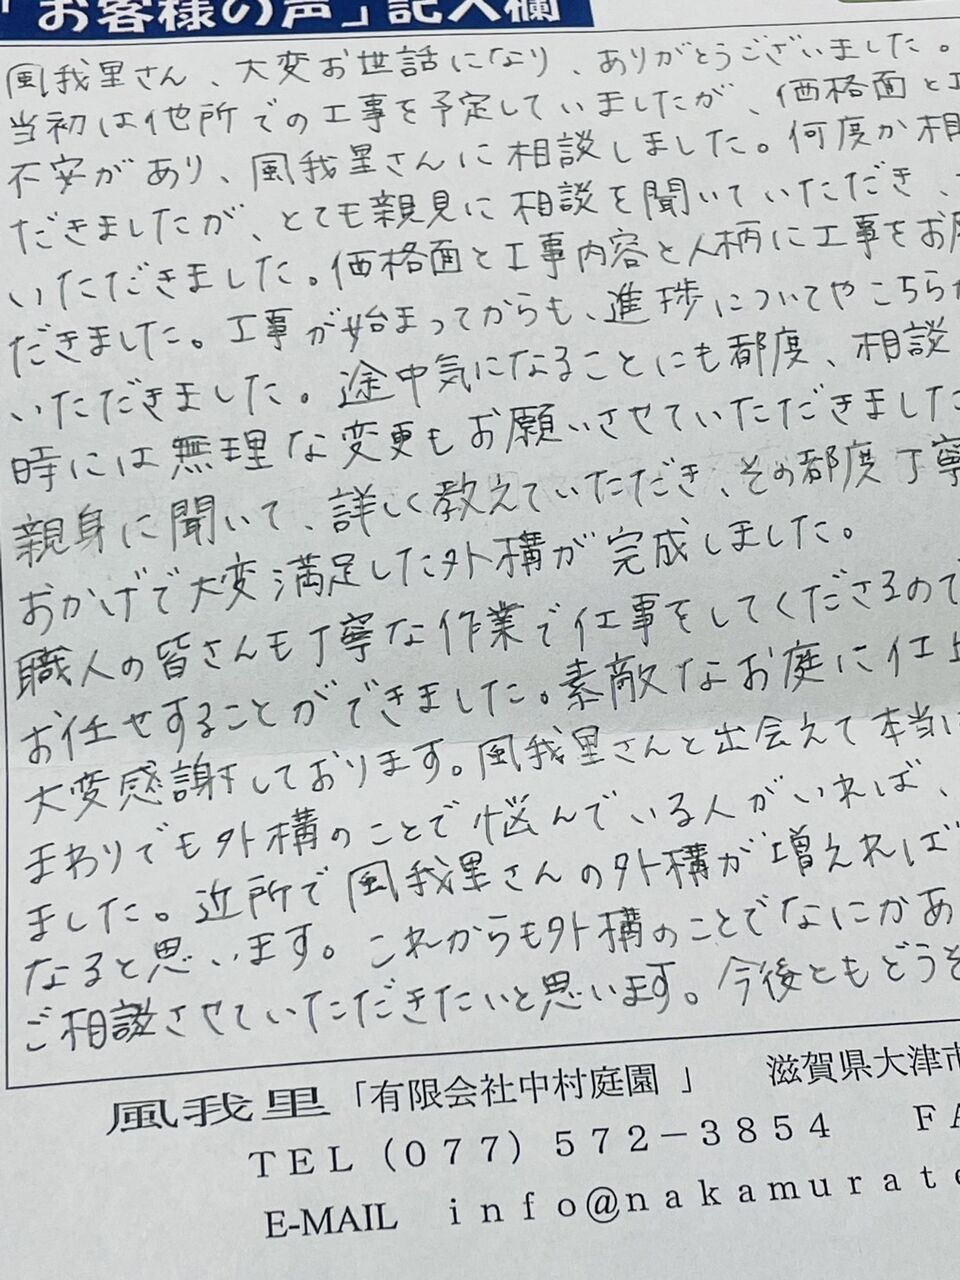 「お客様の声」記入欄
風我里さん、大変お世話になり、ありがとうございました。
当初は他所での工事を予定していましたが、価格面と工
不安があり、風我里さんに相談しました。何度か相
だきましたが、とても親見に相談を聞いていただき、
いただきました。価格面と工事内容と人柄に工事をお願
だきました。工事が始まってからも、進捗についてやこちらか
いただきました。途中気になることにも都度、相談
時には無理な変更もお願いさせていただきました
親身に聞いて、詳しく教えていただき、その都度丁寧
おかげで大変満足した外構が完成しました。
職人の皆さんも丁寧な作業で仕事をしてくださるので
お任せすることができました。素敵なお庭に仕上
大変感謝しております。風我里さんと出会えて本当に
まわりでも外構のことで悩んでいる人がいれば、
ました。近所で風我里さんの外構が増えれば
なると思います。これからも外構のことでなにかあ
ご相談させていただきたいと思います。今後ともどうぞ
風我里「有限会社中村庭園 」 滋賀県大津市
ＴＥＬ（０７７）５７２－３８５４ ＦＡ
E-MAIL ｉｎｆｏ＠ｎａｋａｍｕｒａｔｅ